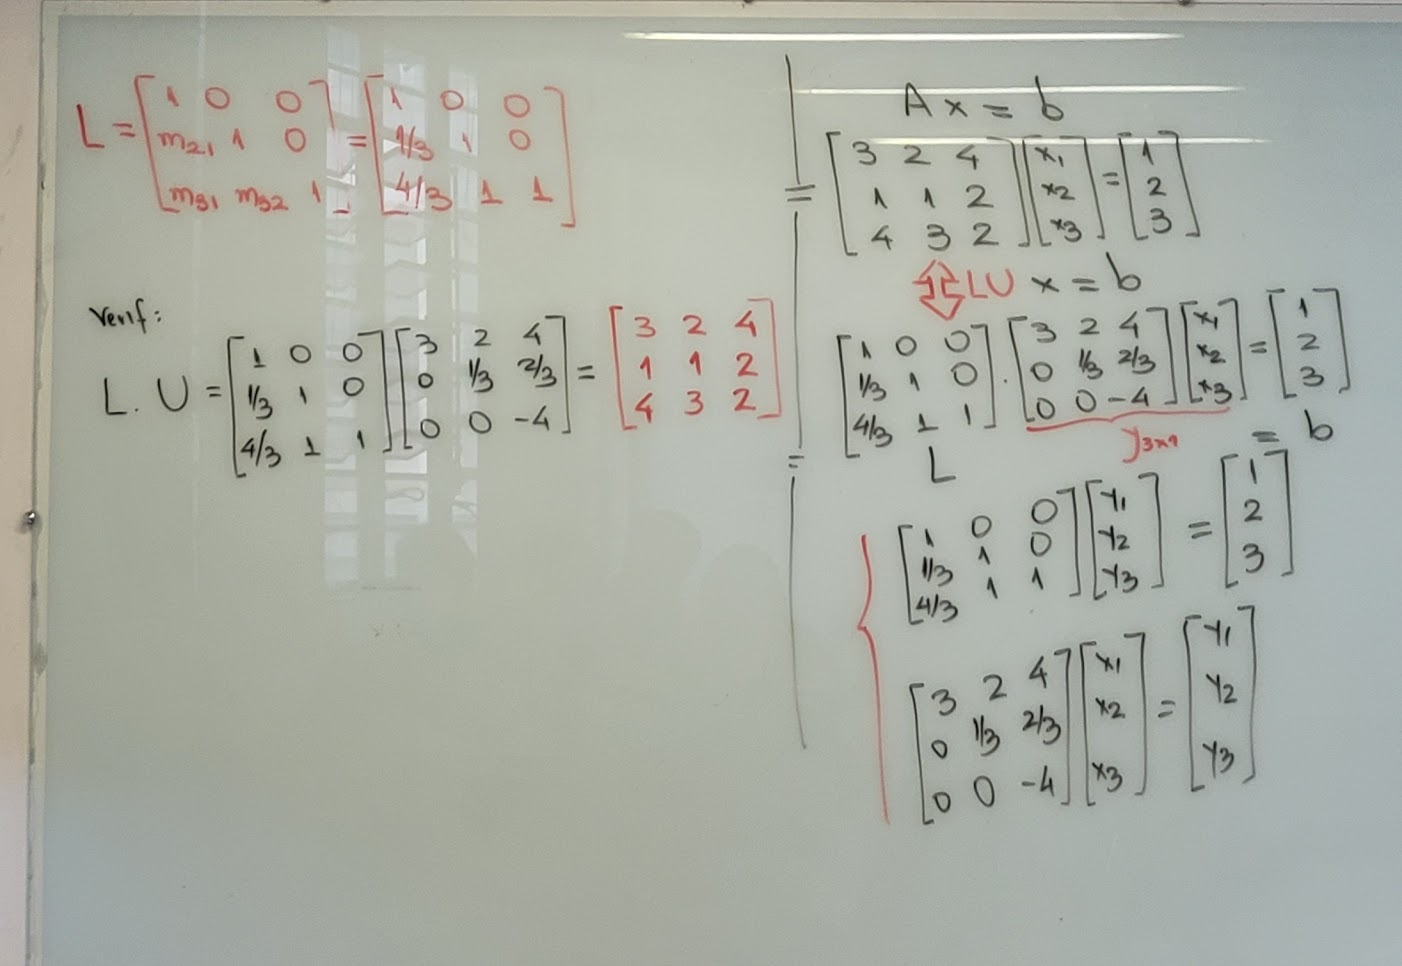 L = [1 0 0; m21 1 0; m31 m32 1] = [1 0 0; 1/3 1 0; 4/3 1 1]
Verif:
L. U = [1 0 0; 1/3 1 0; 4/3 1 1] [3 2 4; 0 1/3 2/3; 0 0 -4] = [3 2 4; 1 1 2; 4 3 2]
A x = b
[3 2 4; 1 1 2; 4 3 2] [x1; x2; x3] = [1; 2; 3]
LU x = b
[1 0 0; 1/3 1 0; 4/3 1 1] . [3 2 4; 0 1/3 2/3; 0 0 -4] [x1; x2; x3] = [1; 2; 3]
L y3x1 = b
[1 0 0; 1/3 1 0; 4/3 1 1] [y1; y2; y3] = [1; 2; 3]
[3 2 4; 0 1/3 2/3; 0 0 -4] [x1; x2; x3] = [y1; y2; y3]